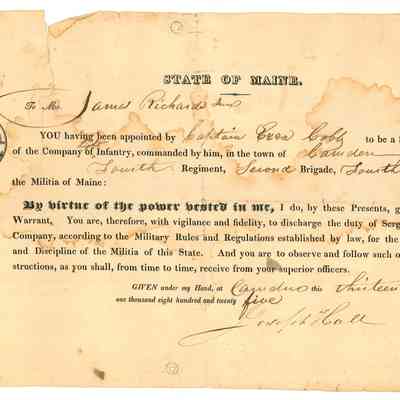 STATE OF MAINE.
To Mr. James Richards Junr
YOU having been appointed by Captain Eben Cobb to be a
of the Company of Infantry, commanded by him, in the town of Camden
Fourth Regiment, Second Brigade, Fourth
the Militia of Maine:
By virtue of the power vested in me, I do, by these Presents, g
Warrant. You are, therefore, with vigilance and fidelity, to discharge the duty of Serg
Company, according to the Military Rules and Regulations established by law, for the
and Discipline of the Militia of this State. And you are to observe and follow such o
structions, as you shall, from time to time, receive from your superior officers.
GIVEN under my Hand, at Camden this thirteen
one thousand eight hundred and twenty five
Joseph Hall